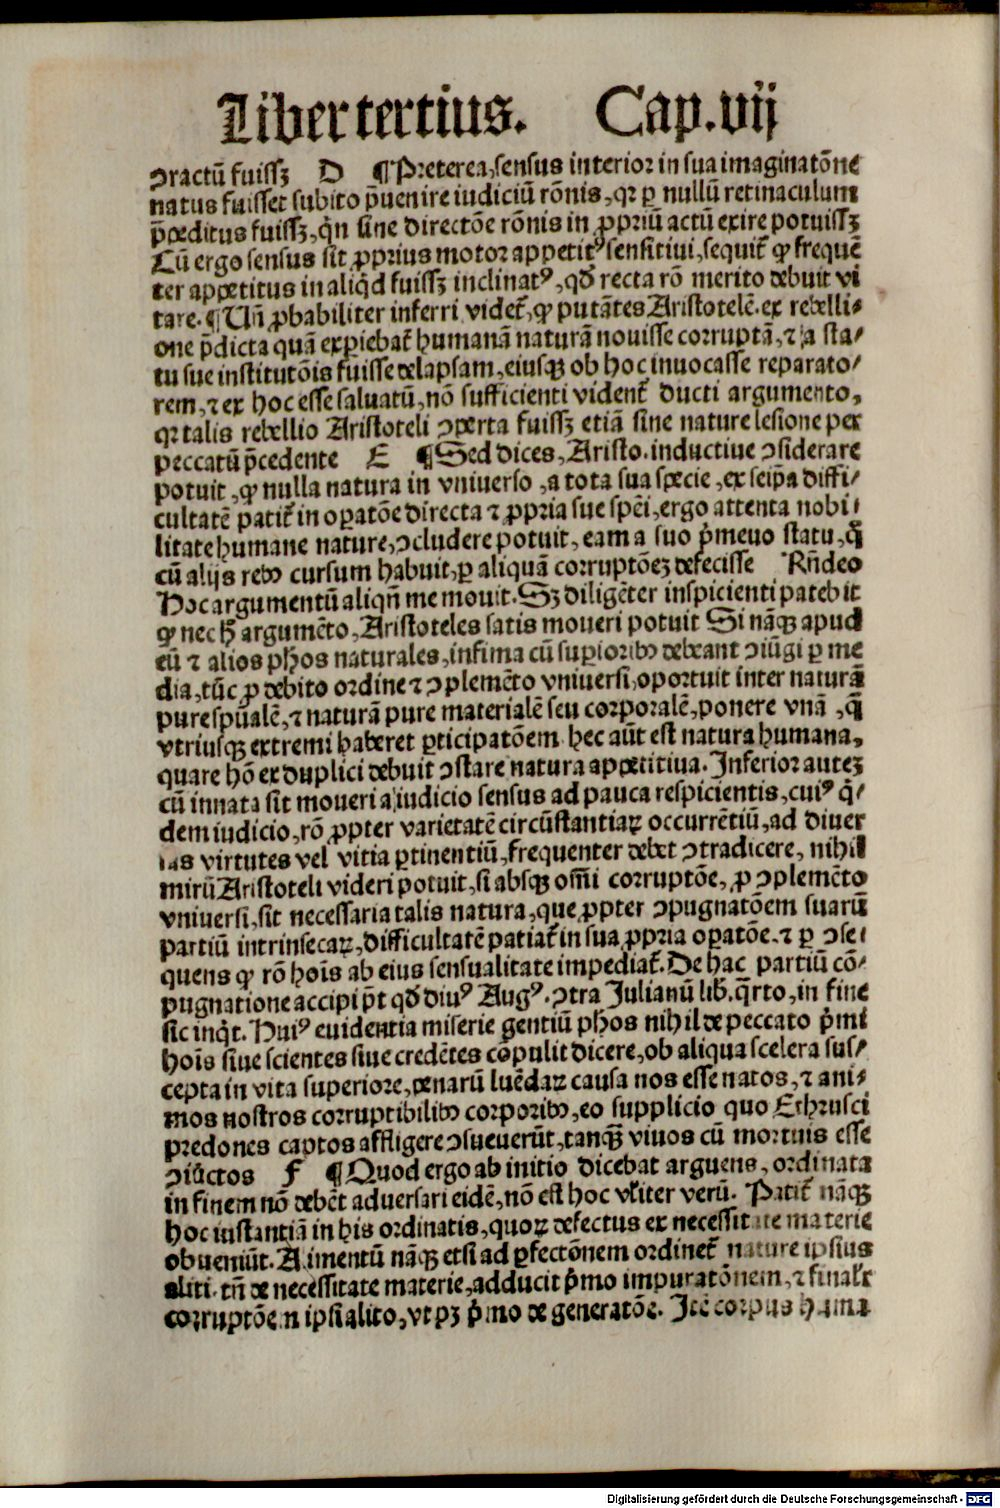 Liber tertius. Cap. vij
ↄractū fuissꝫ D ¶ Preterea, sensus interior in sua imaginatōne
natus fuisset subito p̄uenire iudiciū rōnis, qꝛ ꝑ nullū retinaculum
p̄peditus fuissꝫ, qn̄ sine directōe rōnis in ꝓpriū actū exire potuissꝫ
Cū ergo sensus sit ꝓprius motor appetitꝰ sensitiui, sequit᷑ ꝙ frequē
ter appetitus in aliqd fuissꝫ inclinatꝰ, qd̓ recta rō merito debuit vi
tare. ¶ Un̄ ꝓbabiliter inferri videt᷑, ꝙ putātes Aristotelē. ex rebelli⸗
one p̄dicta quā expiebat᷑ humanā naturā nouisse corruptā, ⁊ a sta⸗
tu sue institutōis fuisse delapsam, eiusqꝫ ob hoc inuocasse reparato⸗
rem, ⁊ ex hoc esse saluatū, nō sufficienti vident᷑ ducti argumento,
qꝛ talis rebellio Aristoteli ↄperta fuissꝫ etiā sine nature lesione per
peccatū p̄cedente E ¶ Sed dices, Aristo. inductiue ↄsiderare
potuit, ꝙ nulla natura in vniuerso, a tota sua specie, ex seip̄a diffi⸗
cultatē patit᷑ in oꝑatōe directa ⁊ ꝓpria sue spēi, ergo attenta nobi⸗
litate humane nature, ↄcludere potuit, eam a suo p̓meuo statu, q̄
cū alijs rebꝰ cursum habuit, ꝑ aliquā corruptōeꝫ defecisse Rn̄deo
Hoc argumentū aliqn̄ me mouit. Sꝫ diligēter inspicienti patebit
ꝙ nec h̄ argumēto, Aristoteles satis moueri potuit Si nāqꝫ apud
eū ⁊ alios phos naturales, infima cū suꝑioribꝰ debeant ↄiūgi ꝑ me
dia, tūc ꝓ debito ordine ⁊ ↄplemēto vniuersi, oportuit inter naturā
pure spūalē, ⁊ naturā pure materialē seu corporalē, ponere vnā, q̄
vtriusqꝫ extremi haberet ꝑticipatōem hec aūt est natura humana,
quare hō ex duplici debuit ↄstare natura appetitiua. Inferior auteꝫ
cū innata sit moueri a iudicio sensus ad pauca respicientis, cuiꝰ q̓⸗
dem iudicio, rō ꝓpter varietatē circūstantiaꝝ occurrētiū, ad diuer
sas virtutes vel vitia ꝑtinentiū, frequenter debet ↄtradicere, nihil
mirū Aristoteli videri potuit, si absqꝫ om̄i corruptōe, ꝓ ↄplemēto
vniuersi, sit necessaria talis natura, que ꝓpter ↄpugnatōem suarū
partiū intrinsecaꝝ, difficultatē patiat᷑ in sua ꝓpria oꝑatōe. ⁊ ꝑ ↄse⸗
quens ꝙ rō hoīs ab eius sensualitate impediat᷑. De hac partiū cō⸗
pugnatione accipi p̄t qd̓ diuꝰ Augꝰ. ↄtra Julianū lib. q̄rto, in fine
sic inq̓t. Huiꝰ euidentia miserie gentiū phos nihil de peccato p̓mi
hoīs siue scientes siue credētes cōpulit dicere, ob aliqua scelera sus⸗
cepta in vita superiore, penarū luēdaꝝ causa nos esse natos, ⁊ ani⸗
mos nostros corruptibilibꝰ corporibꝰ, eo supplicio quo Ethrusci
predones captos affligere ↄsueuerūt, tanqꝫ viuos cū mortuis esse
ↄiūctos F ¶ Quod ergo ab initio dicebat arguens, ordinata
in finem nō debēt aduersari eidē, nō est hoc vl̓iter verū. Patit᷑ nāqꝫ
hoc instantiā in his ordinatis, quoꝝ defectus ex necessitate materie
obueniūt. Alimentū nāqꝫ etsi ad ꝑfectōnem ordinet᷑ nature ipsius
aliti. tn̄ de necessitate materie, adducit p̓mo impuratōnem, ⁊ finalr̓
corruptōem ipsi alito, vt pꝫ p̓mo de generatōe. Itē corpus huma
Digitalisierung gefördert durch die Deutsche Forschungsgemeinschaft - DFG